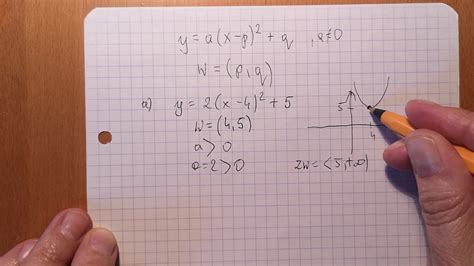 y = a(x-p)² + q , a≠0
W = (p,q)
a) y = 2(x-4)² + 5
W = (4,5)
a > 0
a = 2 > 0
5
4
ZW = <5,+∞)